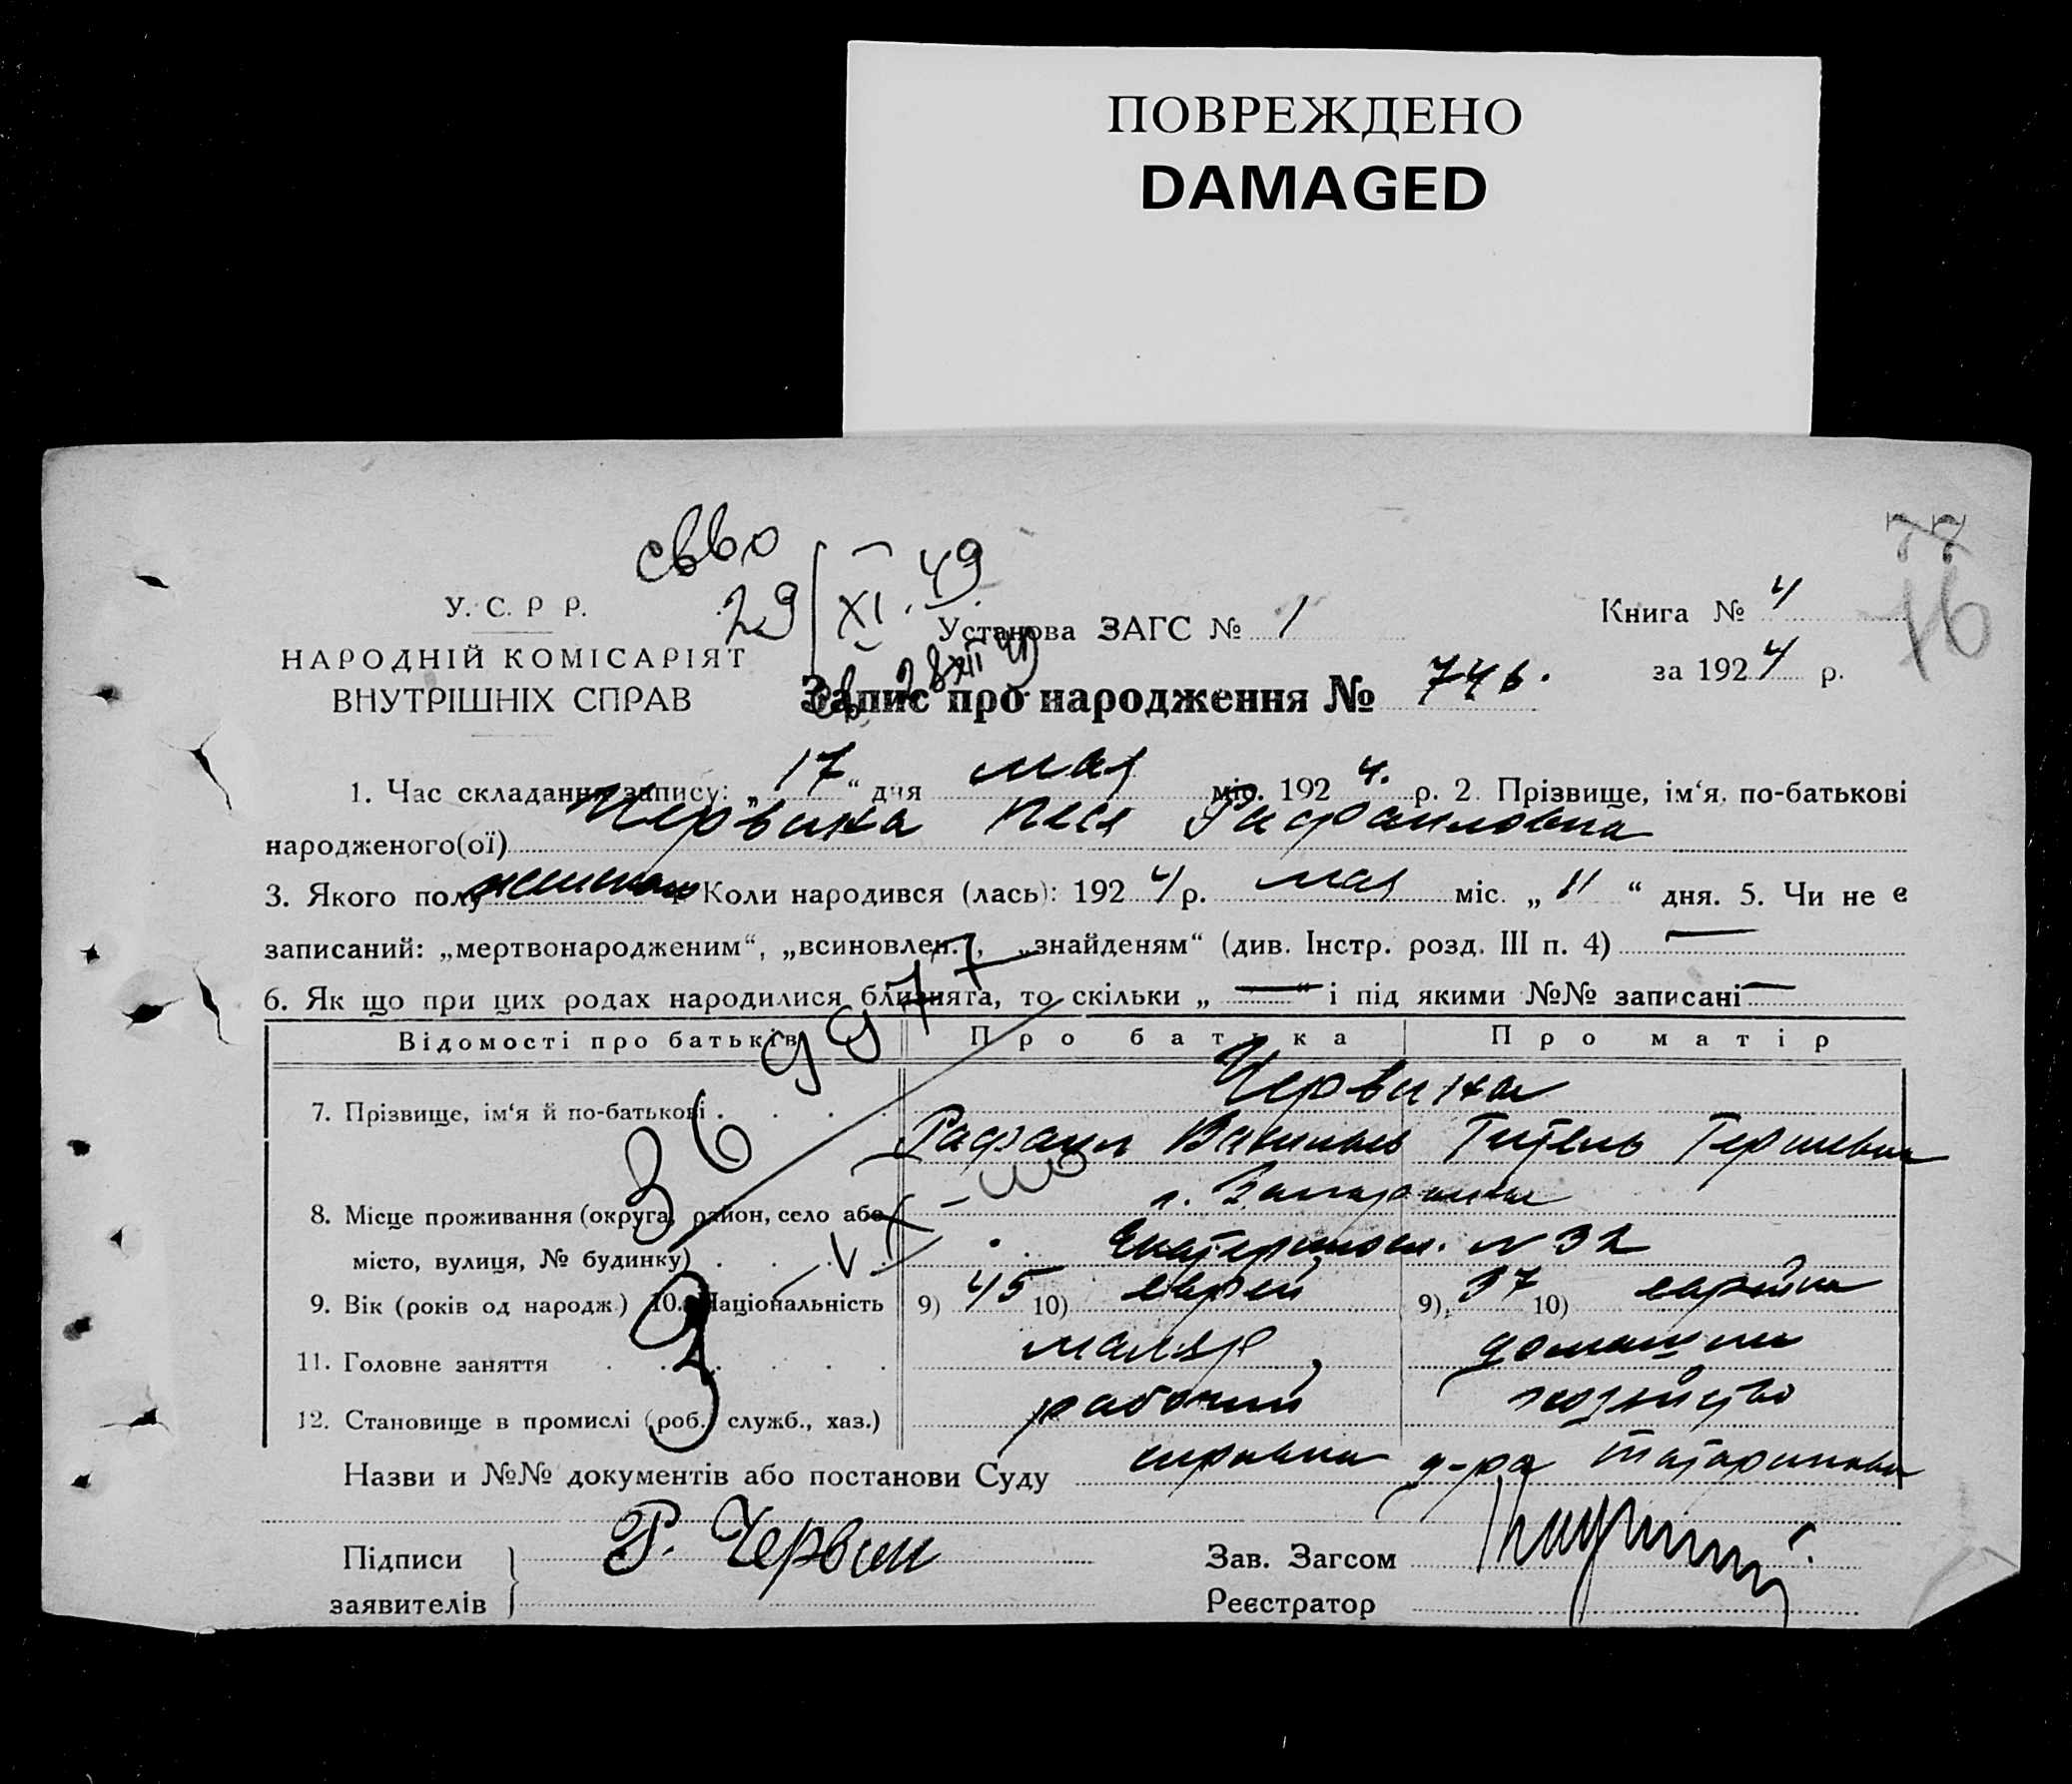 ПОВРЕЖДЕНО
DAMAGED
77
16
У. С. Р Р.
НАРОДНІЙ КОМІСАРІЯТ
ВНУТРІШНІХ СПРАВ
29/XI. 49.
Установа ЗАГС № 1
28 XII 49
Книга № 4
за 1924 р.
Запис про народження № 746.
1. Час складання запису: „17“ дня мая міс. 1924. р. 2. Прізвище, ім‘я, по-батькові
народженого(ої) Червина Песя Рафаиловна
3. Якого полу женского Коли народився (лась): 1924 р. мая міс. „11“ дня. 5. Чи не є
записаний: „мертвонародженим“, „всиновлен.“, „знайденям“ (див. Інстр. розд. III п. 4) —
6. Як що при цих родах народилися близнята, то скільки „—“ і під якими №№ записані —
Відомості про батьків Про батька Про матір
7. Прізвище, ім‘я й по-батькові Червина
Рафаил Гитель Гершевна
8. Місце проживання (округа, район, село або
місто, вулиця, № будинку) Екатериносл. № 32
9. Вік (років од народж.) 10. Національність 9) 45 10) еврей 9) 37 10) еврейка
11. Головне заняття маляр, домашнее
12. Становище в промислі (роб., служб., хаз.) рабочий хозяйство
Назви и №№ документів або постанови Суду справка д-ра
Підписи
заявителів
Р. Червин
Зав. Загсом
Реєстратор